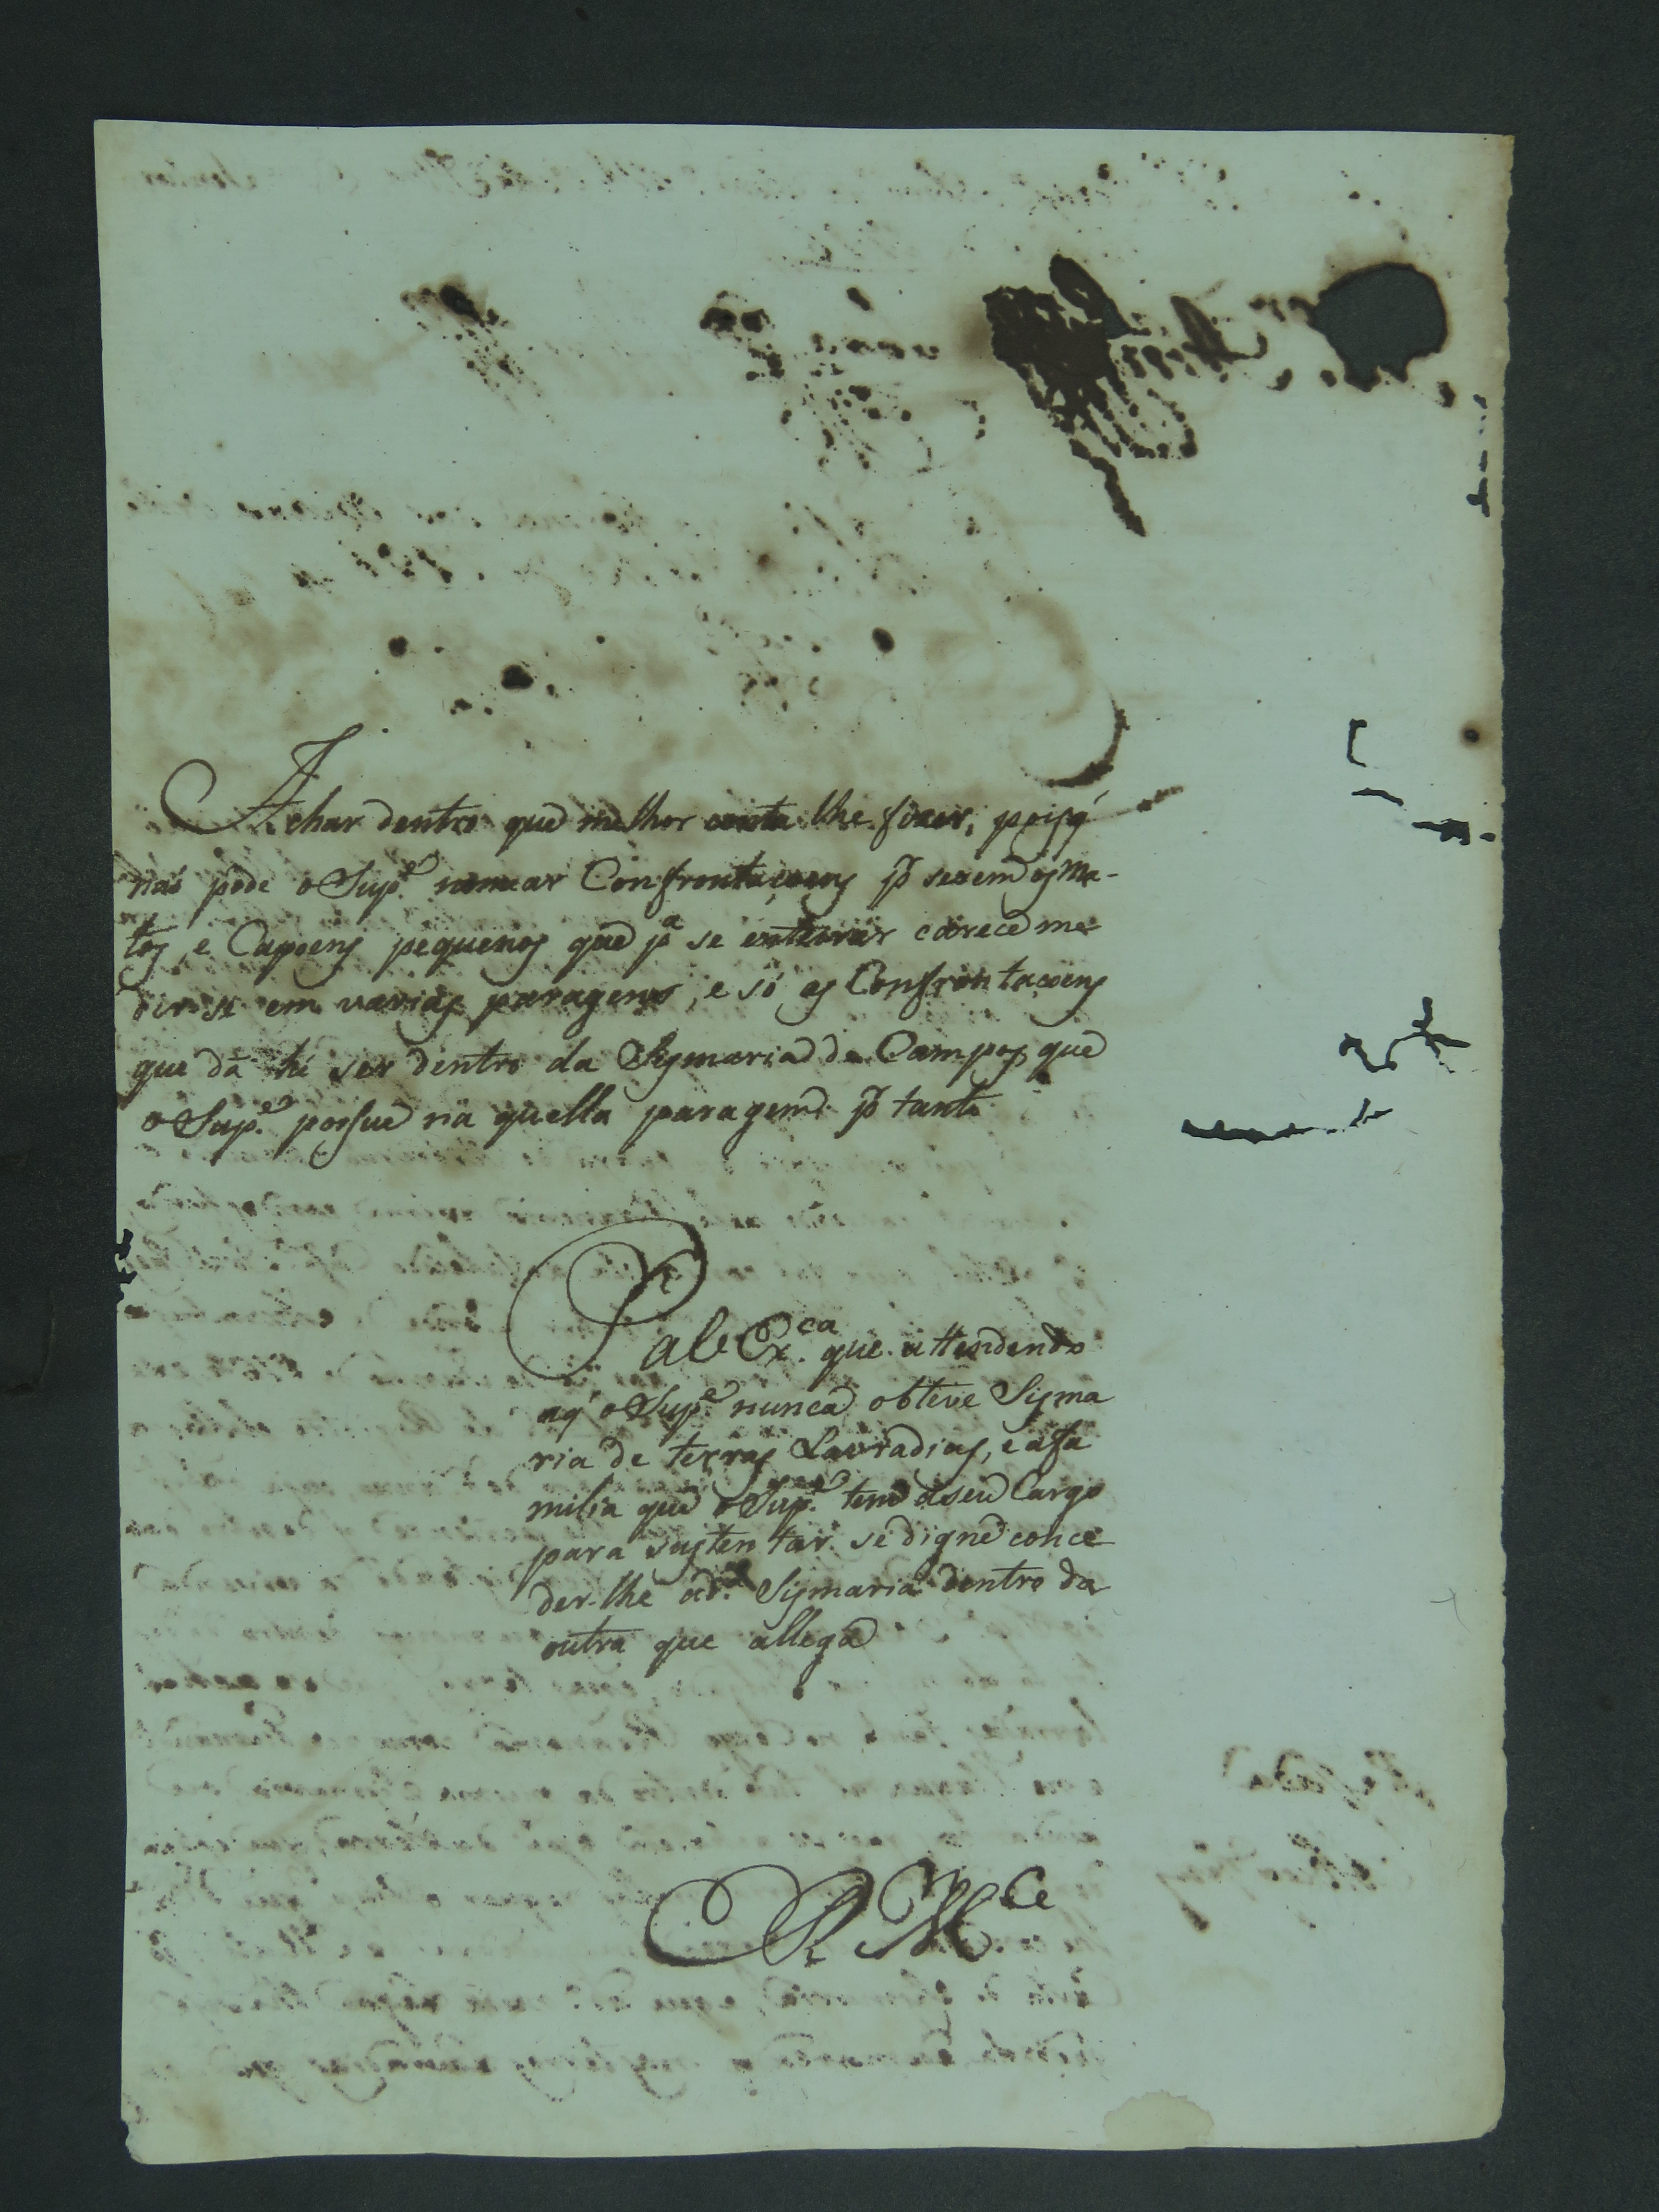 Achar dentro que melhor conta lhe fizer, pois q̃
naó pode o Sup.e nomear Confrontaçoens p.r serem os Ma-
tos, e Capoens pequenos que p.a se enteirar carece me-
dirse em varias paragens, e só as Confrontaçoens
que dá hé ser dentro da Sysmaria de Campos que
o Sup.e possue na quella paragem p.r tanto
P. a V Ex.ca que attendendo
aq̃ o Sup.e nunca obteve Sisma
ria de terras Lavradias, e afa
milia que o Sup.e tem aseu Cargo
para sustentar se digne conce
der-lhe ad.a Sysmaria dentro da
outra que allega
R. M.ce